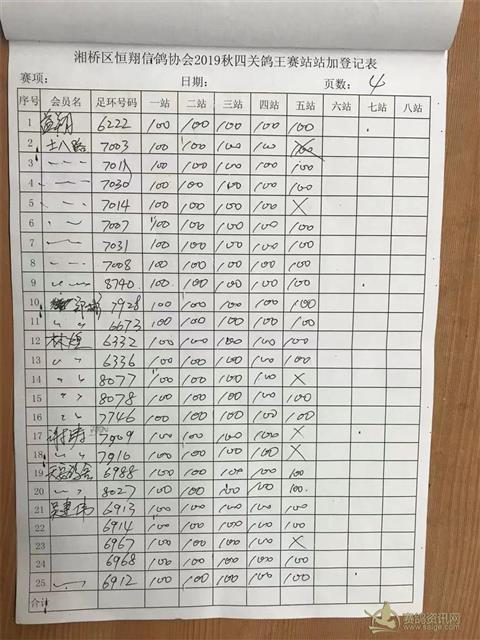 湘桥区恒翔信鸽协会2019秋四关鸽王赛站站加登记表
赛项: 日期: 页数: 4
序号 会员名 足环号码 一站 二站 三站 四站 五站 六站 七站 八站
1 6222 100 100 100 100 100
2 十八路 7003 100 100 100 100 100
3 〃 7011 100 100 100 100 100
4 〃 7030 100 100 100 100 100
5 〃 7014 100 100 100 100 X
6 〃 7007 100 100 100 100 100
7 〃 7031 100 100 100 100 100
8 〃 7008 100 100 100 100 100
9 〃 8740 100 100 100 100 100
10 7928 100 100 100 100 100
11 〃 6673 100 100 100 100 100
12 6332 100 100 100 100 100
13 〃 6336 100 100 100 100 100
14 〃 8077 100 100 100 100 X
15 〃 8078 100 100 100 100 100
16 〃 7746 100 100 100 100 100
17 7909 100 100 100 100 X
18 〃 7916 100 100 100 100 X
19 6988 100 100 100 100 100
20 〃 8027 100 100 100 100 100
21 吴建伟 6913 100 100 100 100 100
22 6914 100 100 100 100 100
23 6967 100 100 100 100 X
24 6968 100 100 100 100 100
25 〃 6912 100 100 100 100 100
合计
赛鸽资讯网
www.saige.com